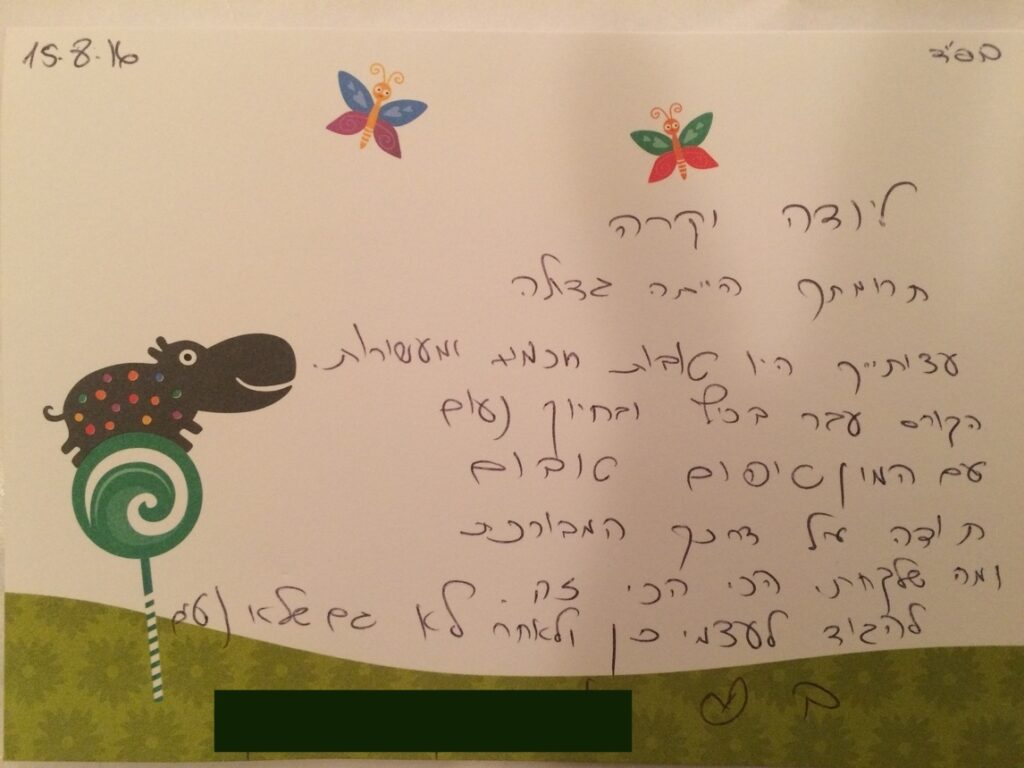 בס״ד
15.8.16
ליודה יקרה
תרומתך הייתה גדולה
עצותייך היו טובות חכמות ומעשירות.
הקורס עבר בכיף ובחיוך נעים
עם המון טיפים טובים
תודה על דרכך המבורכת
ומה שלקחתי הכי הכי זה.
להגיד לעצמי כן ולאחר לא גם שלא נעים